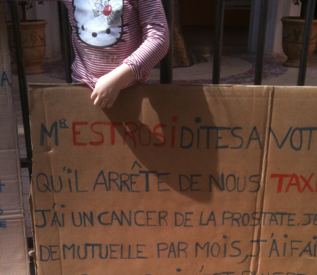 MR ESTROSI DITES A VOT
QU'IL ARRÊTE DE NOUS TAXE
J'AI UN CANCER DE LA PROSTATE, JE
DE MUTUELLE PAR MOIS, J'AI FAI